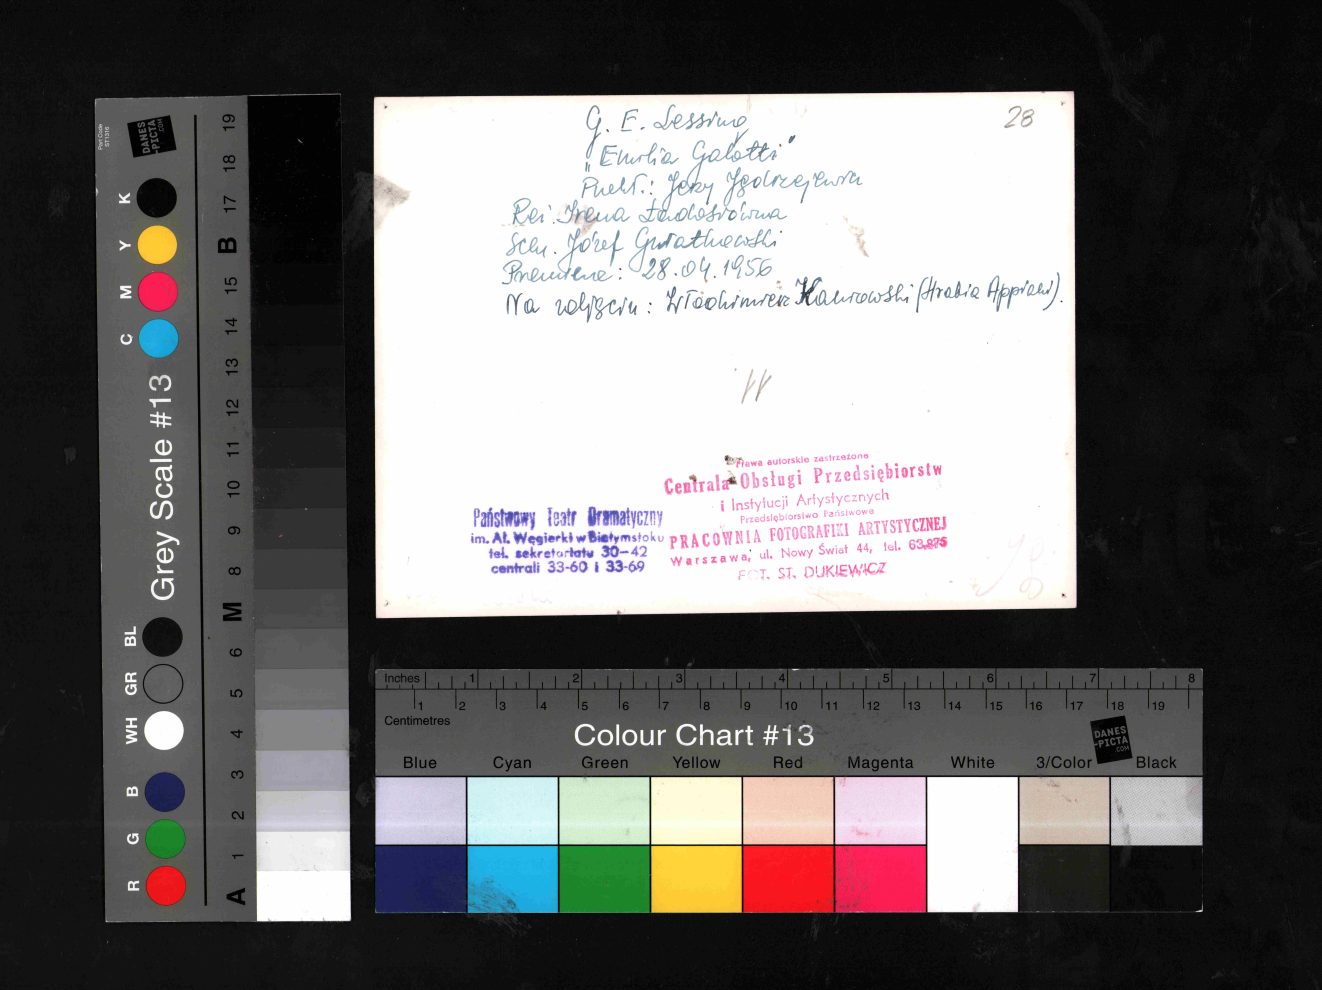 28
G. E. Lessing
"Emilia Galotti"
Przekł.: Jerzy Jędrzejewicz
Reż. Irena Ładosiówna
Scen. Józef Gwiatkowski
Premiera: 28.04.1956
Na zdjęciu: Włodzimierz (Hrabia Appiani).
Prawa autorskie zastrzeżone
Centrala Obsługi Przedsiębiorstw
i Instytucji Artystycznych
Przedsiębiorstwo Państwowe
PRACOWNIA FOTOGRAFIKI ARTYSTYCZNEJ
Warszawa, ul. Nowy Świat 44, tel. 63.875
FOT. ST. DUKIEWICZ
Państwowy Teatr Dramatyczny
im. Al. Węgierki w Białymstoku
tel. sekretariatu 30-42
centrali 33-60 i 33-69
Part Code
ST1316
DANES
-PICTA
.COM
Grey Scale #13
K
Y
M
C
BL
GR
WH
B
G
R
19
18
17
B
15
14
13
12
11
10
9
8
M
6
5
4
3
2
1
A
Inches 1 2 3 4 5 6 7 8
1 2 3 4 5 6 7 8 9 10 11 12 13 14 15 16 17 18 19
Centimetres
Colour Chart #13
DANES
-PICTA
.COM
Blue Cyan Green Yellow Red Magenta White 3/Color Black